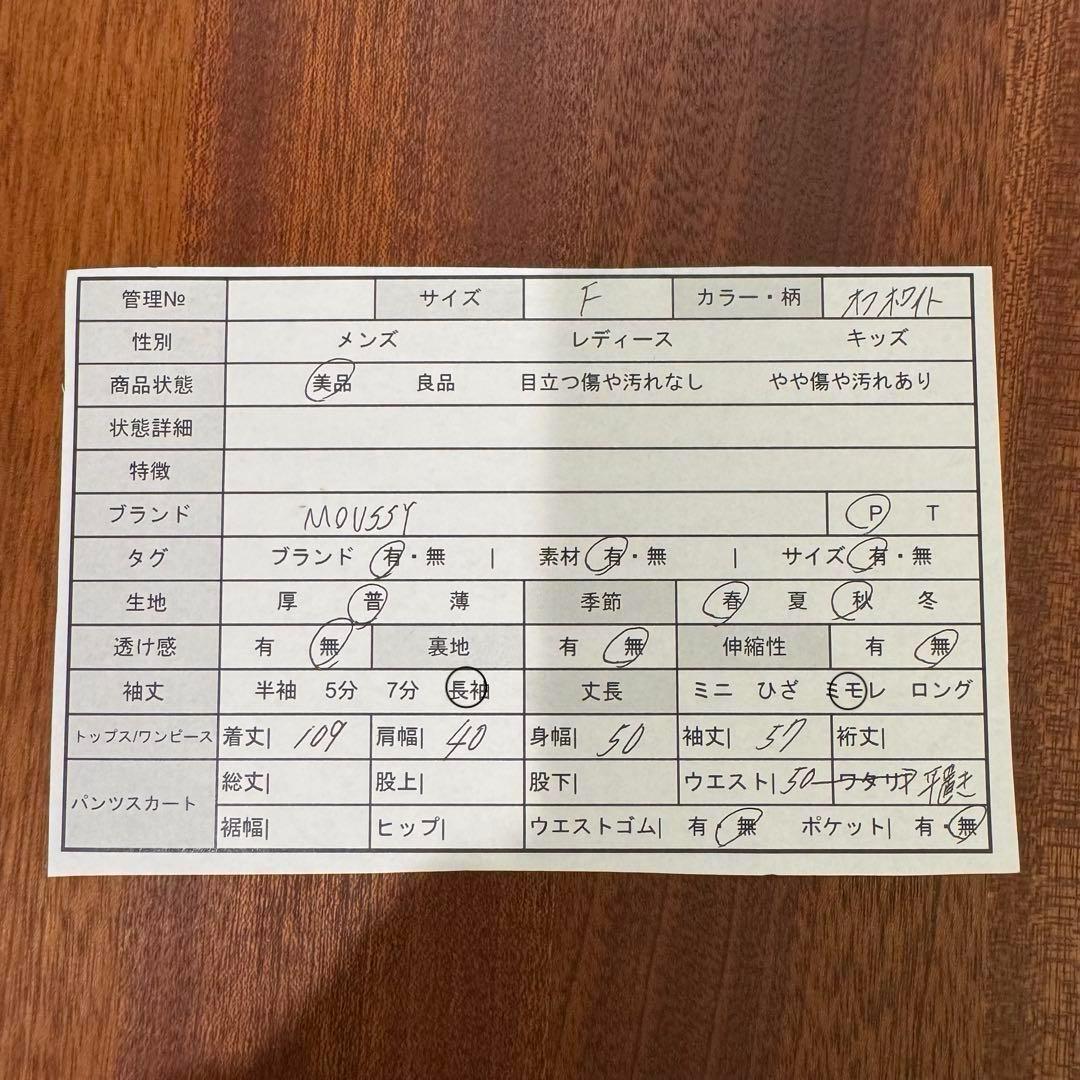 管理№ サイズ F カラー・柄 オフホワイト
性別 メンズ レディース キッズ
商品状態 美品 良品 目立つ傷や汚れなし やや傷や汚れあり
状態詳細
特徴
ブランド MOUSSY P T
タグ ブランド 有・無 | 素材 有・無 | サイズ 有・無
生地 厚 普 薄 季節 春 夏 秋 冬
透け感 有 無 裏地 有 無 伸縮性 有 無
袖丈 半袖 5分 7分 長袖 丈長 ミニ ひざ ミモレ ロング
トップス/ワンピース 着丈| 109 肩幅| 40 身幅| 50 袖丈| 57 裄丈|
パンツスカート 総丈| 股上| 股下| ウエスト| 50 ワタリ| 平置き
裾幅| ヒップ| ウエストゴム| 有・無 ポケット| 有・無